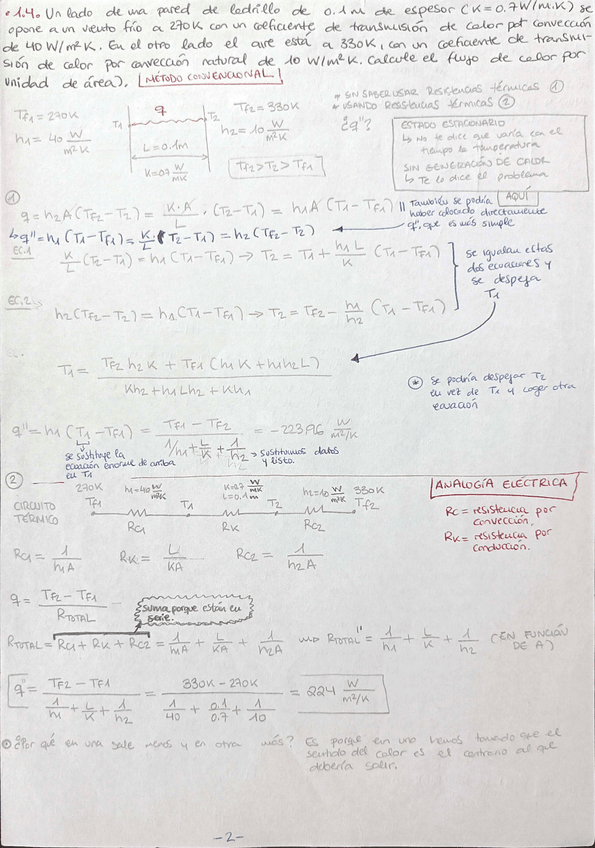 • 1.4. Un lado de una pared de ladrillo de 0.1m de espesor (K=0.7W/m.K) se
opone a un viento frío a 270K con un coeficiente de transmisión de calor por convección
de 40 W/m²K. En el otro lado el aire está a 330K, con un coeficiente de transmi-
sión de calor por convección natural de 10 W/m²K. Calcule el flujo de calor por
unidad de área). MÉTODO CONVENCIONAL
* SIN SABER USAR RESISTENCIAS TÉRMICAS ①
* USANDO RESISTENCIAS TÉRMICAS ②
Tf1 = 270K
h1 = 40 W/m²K
q
T1
T2
L = 0.1m
K = 0.7 W/mK
Tf2 = 330K
h2 = 10 W/m²K
Tf2 > T2 > Tf1
¿q''?
ESTADO ESTACIONARIO
↳ No te dice que varía con el
tiempo la temperatura
SIN GENERACIÓN DE CALOR
↳ Te lo dice el problema
①
q = h2A (Tf2-T2) = K·A/L · (T2-T1) = h1A (T1-Tf1) || También se podría AQUÍ
haber colocado directamente
q'', que es más simple
↳ q'' = h1 (T1-Tf1) = K/L (T2-T1) = h2 (Tf2-T2)
EC.1
K/L (T2-T1) = h1 (T1-Tf1) → T2 = T1 + h1L/K (T1-Tf1)
EC.2
h2(Tf2-T2) = h1(T1-Tf1) → T2 = Tf2 - h1/h2 (T1-Tf1)
se igualan estas
dos ecuaciones y
se despeja
T1
T1 = Tf2 h2 K + Tf1 (h1K + h1h2L) / Kh2 + h1Lh2 + Kh1
* Se podría despejar T2
en vez de T1 y coger otra
ecuación
q'' = h1 (T1-Tf1) = Tf1 - Tf2 / 1/h1 + L/K + 1/h2 = -223,96 W/m²K
se sustituye la
ecuación enorme de arriba
en T1
> Sustituimos datos
y listo.
②
ANALOGÍA ELÉCTRICA
CIRCUITO
TÉRMICO
270K
Tf1
h1=40 W/m²K
RC1
T1
K=0.7 W/mK
L=0.1m
RK
T2
h2=10 W/m²K
RC2
330K
Tf2
RC = resistencia por
convección.
RK = resistencia por
conducción.
RC1 = 1/h1A RK = L/KA RC2 = 1/h2A
q = Tf2 - Tf1 / RTOTAL
Suma porque están en
serie.
RTOTAL = RC1 + RK + RC2 = 1/h1A + L/KA + 1/h2A ⟹ RTOTAL'' = 1/h1 + L/K + 1/h2 (EN FUNCIÓN
DE A)
q'' = Tf2 - Tf1 / 1/h1 + L/K + 1/h2 = 330K - 270K / 1/40 + 0.1/0.7 + 1/10 = 224 W/m²K
¿Por qué en una sale menos y en otra más? Es porque en uno hemos tomado que el
sentido del calor es el contrario al que
debería salir.
-2-